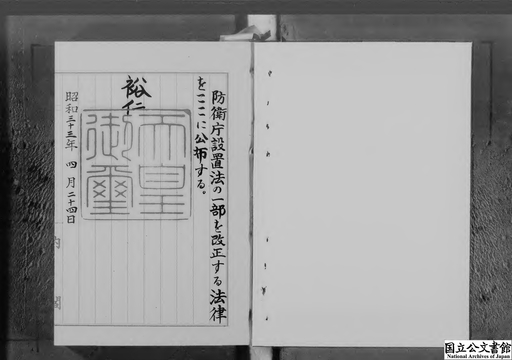 防衛庁設置法の一部を改正する法律
をここに公布する。
裕仁
天皇
御璽
昭和三十三年四月二十四日
国立公文書館
National Archives of Japan